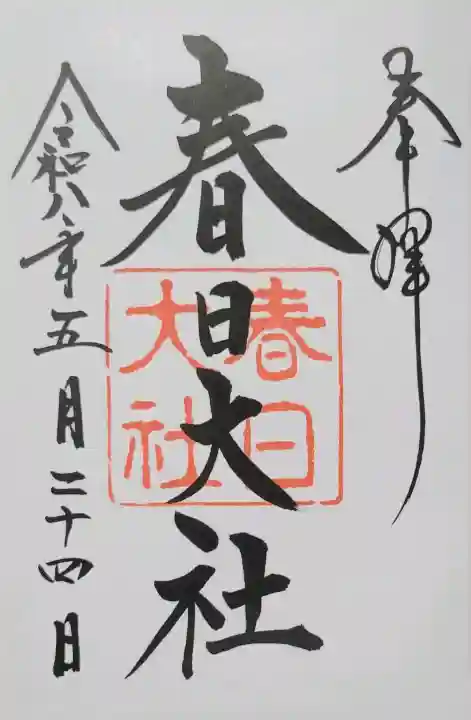 奉拝
春日大社
春日
大社
令和八年五月二十四日